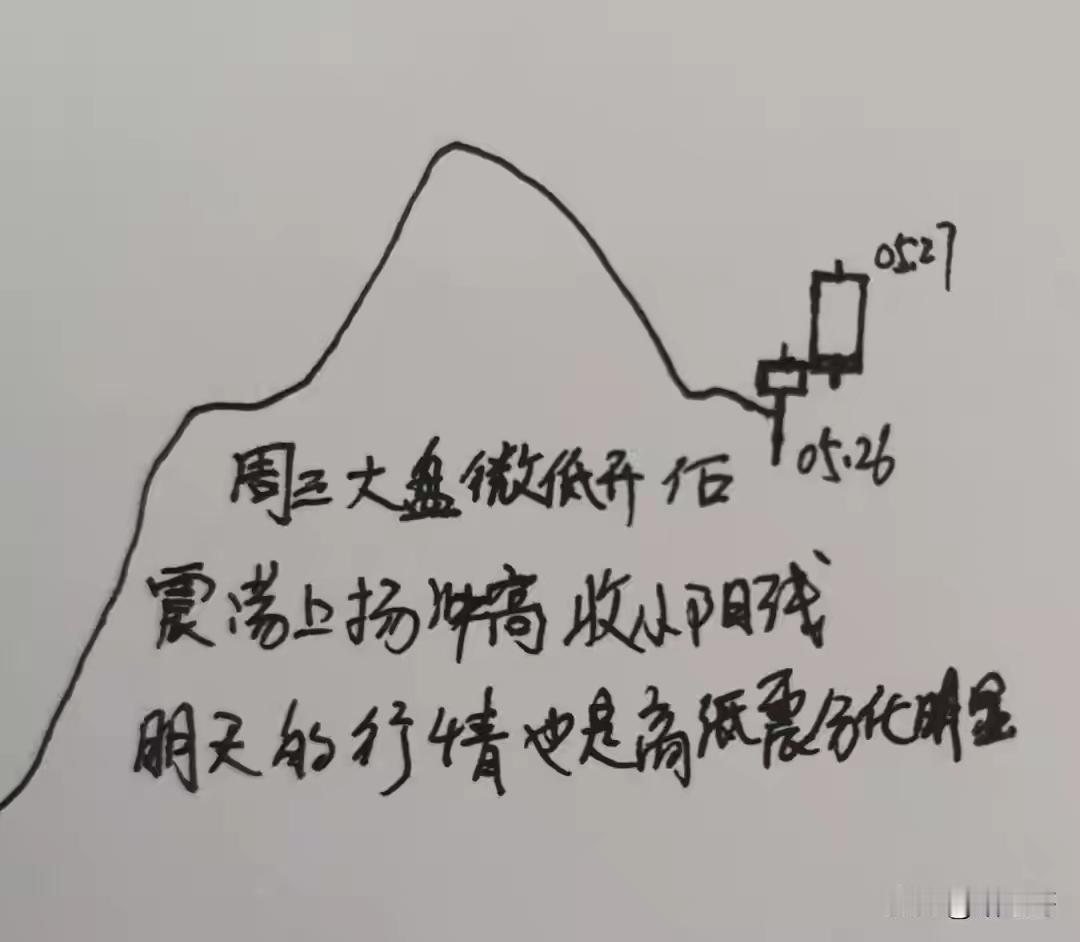 05.27
05.26
周三大盘微低开后
震荡上扬冲高收小阳线
明天的行情也是高低震分化明显